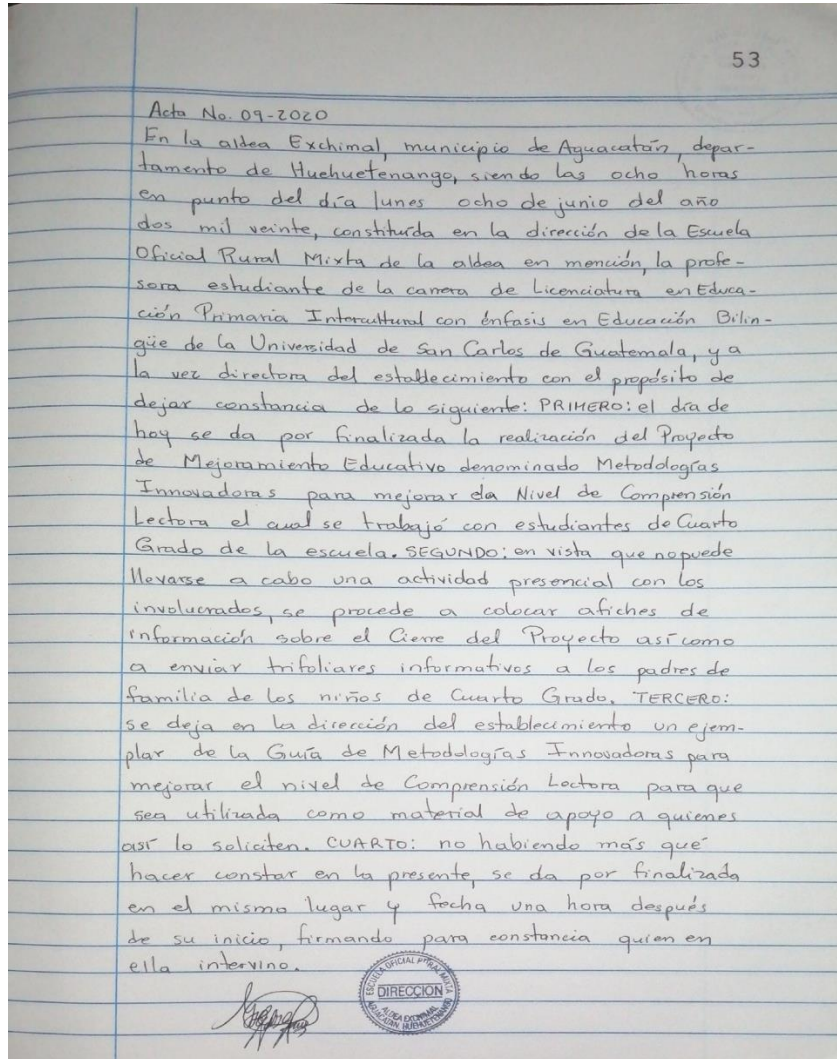 53
Acta No. 09-2020
En la aldea Exchimal, municipio de Aguacatán, depar-
tamento de Huehuetenango, siendo las ocho horas
en punto del día lunes ocho de junio del año
dos mil veinte, constituída en la dirección de la Escuela
Oficial Rural Mixta de la aldea en mención, la profe-
sora estudiante de la carrera de Licenciatura en Educa-
ción Primaria Intercultural con énfasis en Educación Bilin-
güe de la Universidad de San Carlos de Guatemala, y a
la vez directora del establecimiento con el propósito de
dejar constancia de lo siguiente: PRIMERO: el día de
hoy se da por finalizada la realización del Proyecto
de Mejoramiento Educativo denominado Metodologías
Innovadoras para mejorar da Nivel de Comprensión
Lectora el cual se trabajó con estudiantes de Cuarto
Grado de la escuela. SEGUNDO: en vista que no puede
llevarse a cabo una actividad presencial con los
involucrados, se procede a colocar afiches de
información sobre el Cierre del Proyecto así como
a enviar trifoliares informativos a los padres de
familia de los niños de Cuarto Grado. TERCERO:
se deja en la dirección del establecimiento un ejem-
plar de la Guía de Metodologías Innovadoras para
mejorar el nivel de Comprensión Lectora para que
sea utilizada como material de apoyo a quienes
así lo soliciten. CUARTO: no habiendo más que
hacer constar en la presente, se da por finalizada
en el mismo lugar y fecha una hora después
de su inicio, firmando para constancia quien en
ella intervino.
ESCUELA OFICIAL RURAL MIXTA
DIRECCION
ALDEA EXCHIMAL
AGUACATAN, HUEHUETENANGO